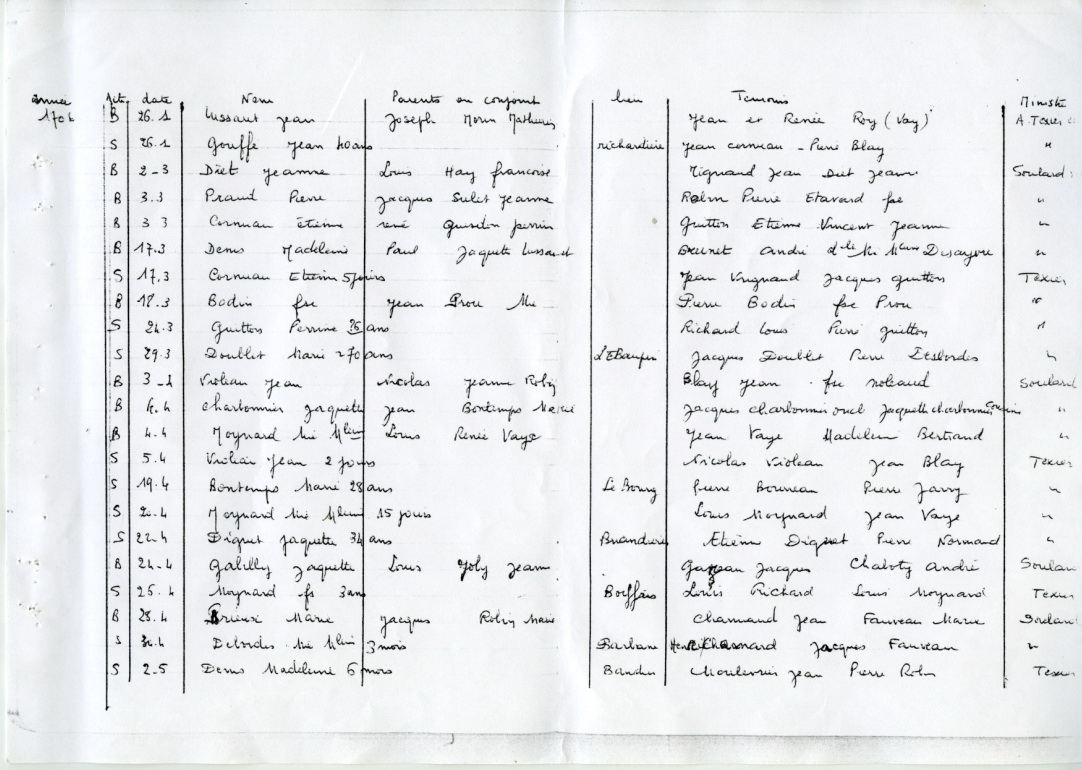 année Acte date Nom Parents ou conjoint lieu Temoins Ministre
1706 B 26.1 Lussaut Jean Joseph Morin Mathurine Jean et Renée Roy (Vay) A. Texier
S 26.1 Gouffé Jean 40ans richardière Jean corneau - Pierre Blay "
B 2-3 Diet Jeanne Louis Hay francoise Mignaud Jean Diet Jeanne Soulard
B 3.3 Praud Pierre Jacques Sulet Jeanne Robin Pierre Etavard fse "
B 3 3 Cornuau étienne rené Guesdon perrine Guitton Etienne Vincent Jeanne "
B 17.3 Denis Madeleine Paul Jaquette Lussaut Brunet André "
S 17.3 Cornuau Etienne 5jours Jean Vrignaud Jacques guitton Texier
B 18.3 Bodin fse Jean Prou Mie Pierre Bodin fse Prou "
S 24.3 Guitton Perrine 26 ans Richard Louis Pierre guitton "
S 29.3 Doublet Marie 270ans Jacques Doublet Pierre Desbordes "
B 3_4 Violeau Jean Nicolas Jeanne Robin Blay Jean . fse Soulard
B 4.4 Charbonnier Jaquette Jean Bontemps Marie Jacques charbonnier oncl Jaquette charbonnier Cousine "
B 4.4 Moynard Mie Mleine Louis Renée Vaye Jean Vaye Madeleine Bertrand "
S 5.4 Violeau Jean 2 jours Nicolas Violeau Jean Blay Texier
S 19.4 Bontemps Marie 28 ans Le Bourg Pierre Bouneau Pierre Jarry "
S 20.4 Moynard Mie Mleine 15 jours Louis Moynard Jean Vaye "
S 22.4 Diguet Jaquette 34 ans Briandière Etienne Diguet Pierre Normand "
B 24_4 Gabilly Jaquette Louis Joly Jeanne Jacques Chaboty André Soulard
S 25.4 Moynard fs 3ans Boeffrais Louis Richard Louis Moynard Texier
B 28.4 Marie Jacques Robin Marie Charmand Jean Fauveau Marie Soulard
S 30.4 Debordes Mie Mleine 3 mois Barbane Henri Chamard Jacques Fauveau "
S 2.5 Denis Madeleine 6 mois Bandin Jean Pierre Robin Texier